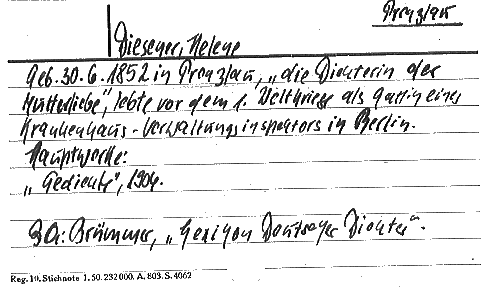 Prenzlau
Diesener, Helene
Geb. 30.6.1852 in Prenzlau, „die Dichterin der
Mutterliebe", lebte vor dem 1. Weltkriege als Gattin eines
Krankenhaus-Verwaltungsinspektors in Berlin.
Hauptwerke:
„Gedichte", 1904.
BA: Brümmer, „Lexikon Deutscher Dichter".
Reg. 10. Stichnote 1. 50. 232000. A. 803. S. 4062